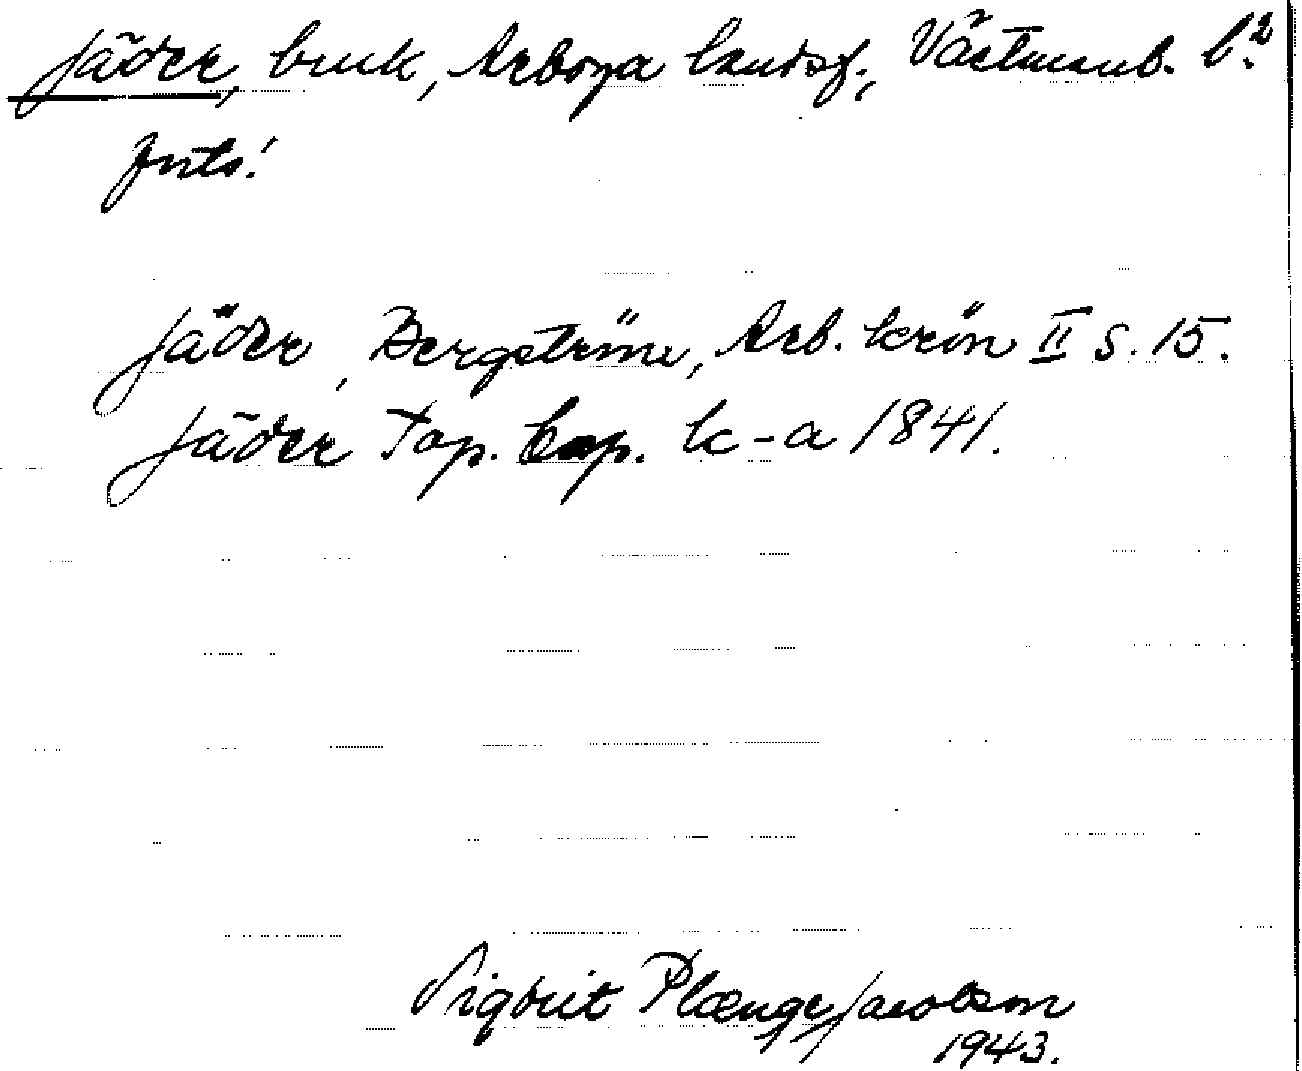 Jäder, bruk, Arboga landsf., Västmanl. l.
forts!
Jäder, Bergström, Arb. krön II s. 15.
Jäder Top. Cap. k-a 1841.
Sigbrit Plænge Jacobson
1943.